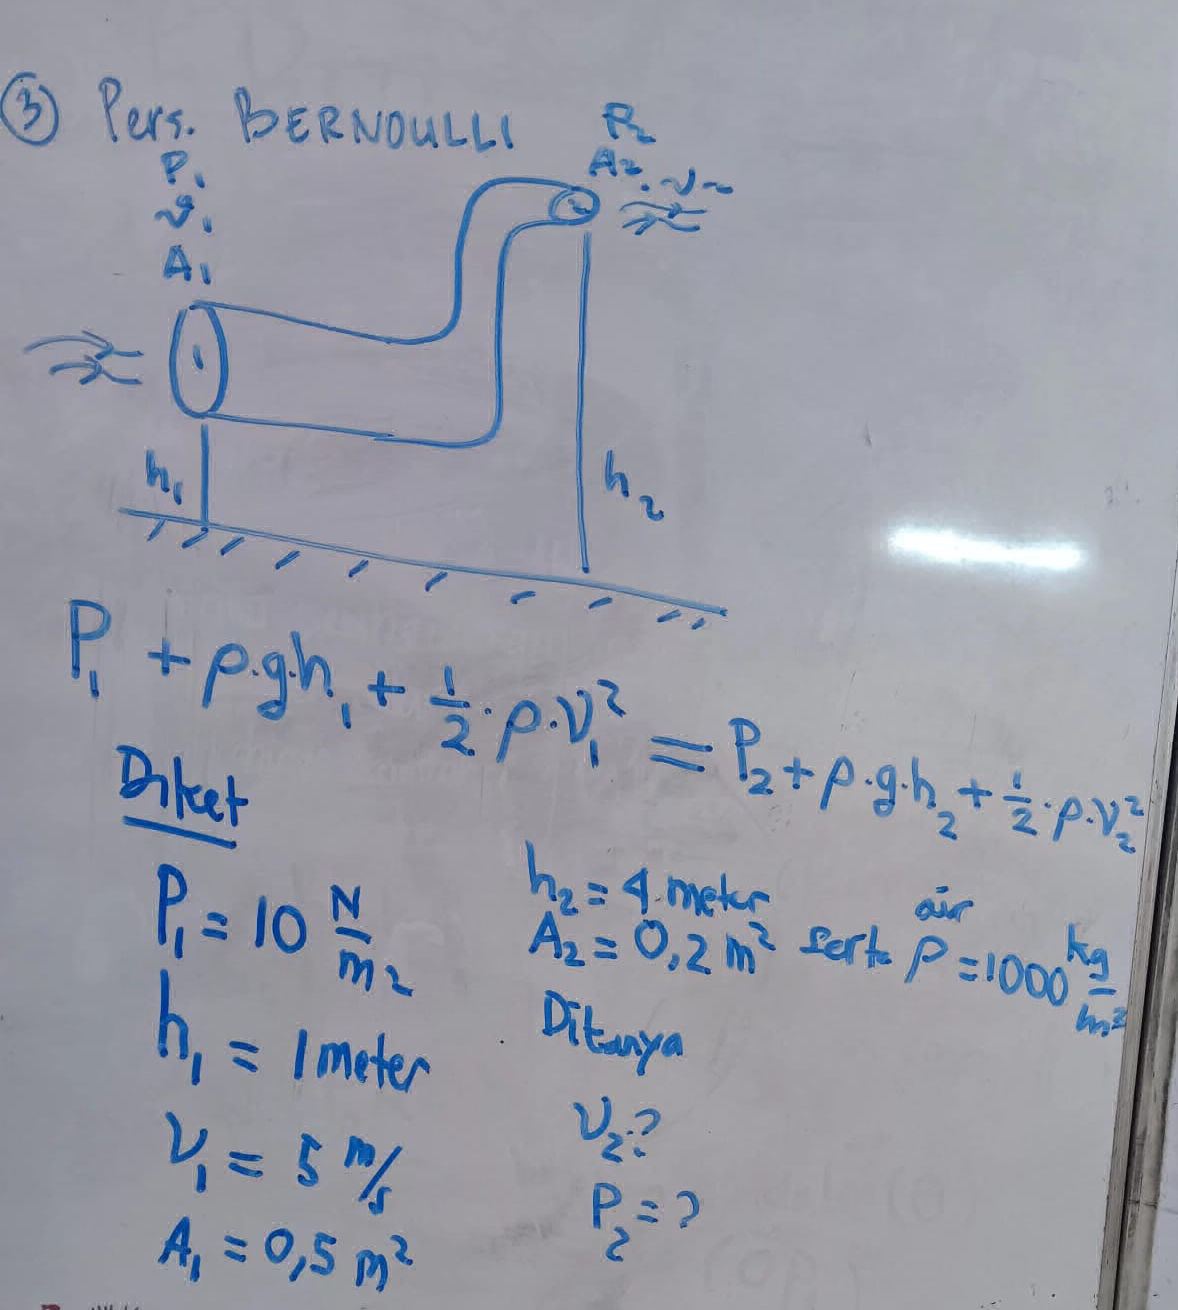 ③ Pers. BERNOULLI
P₁
v₁
A₁
P₂
A₂. v₂
1
2
h₁
h₂
P₁ + ρ.g.h₁ + 1/2 . ρ.V₁² = P₂ + ρ.g.h₂ + 1/2 . ρ.V₂²
Diket
P₁ = 10 N/m2
h₁ = 1 meter
V₁ = 5 m/s
A₁ = 0,5 m²
h₂ = 4 meter
A₂ = 0,2 m² serta ρ air = 1000 kg/m³
Ditanya
V₂?
P₂ = ?